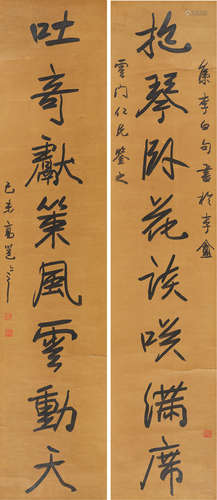 抱琴卧花談咲滿席
集李白句書於李盦
雲門仁兄鑒之
吐奇獻策風雲動天
己未高邕